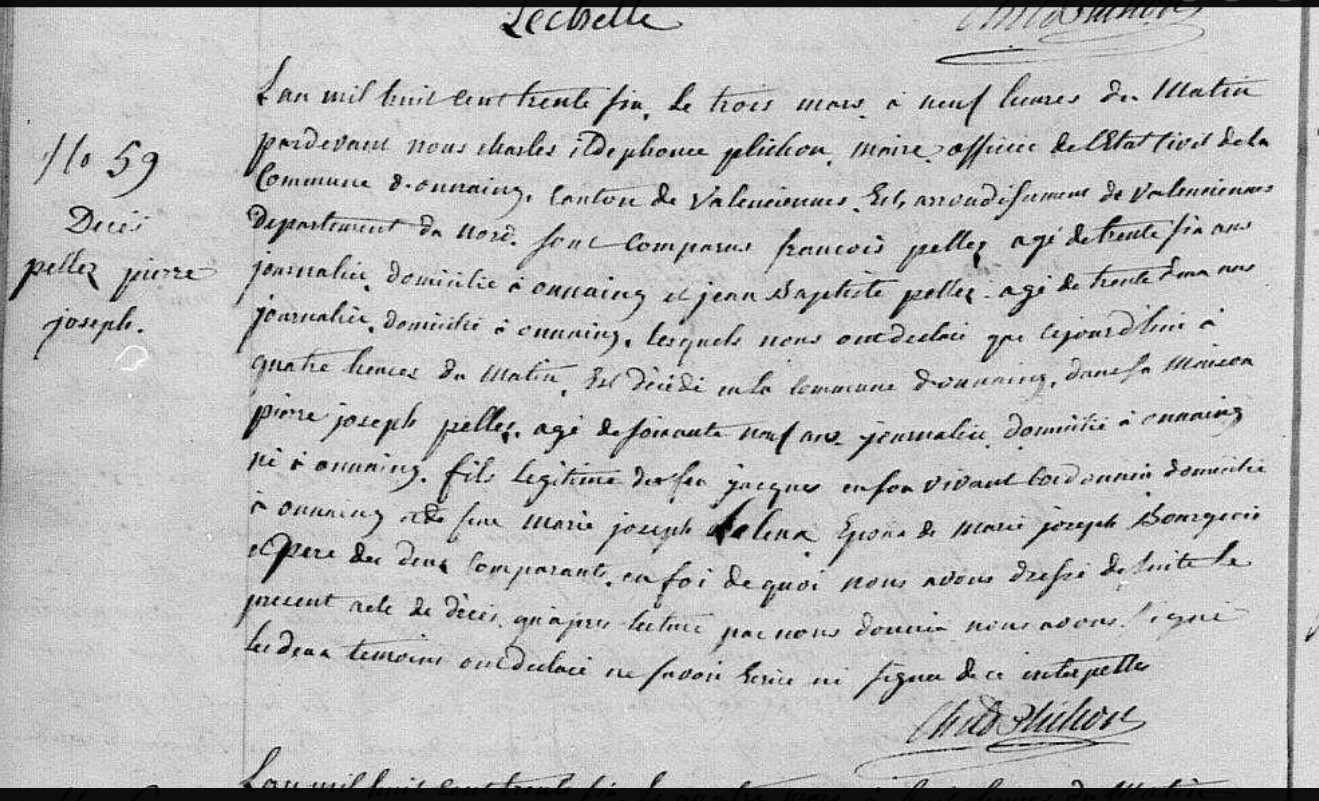 Lechelle
L'an mil huit cent trente six, le trois mars, à neuf heures du Matin
pardevant nous charles ildephonce plichon, maire, officier de l'Etat Civil de la
No 59
Commune d'onnaing, canton de Valenciennes, Est, arrondissement de valenciennes
Décès
Département du nord. sont comparus françois pellez agé de trente six ans
pellez pierre
journalier, domicilié à onnaing et jean Baptiste pellez agé de trente deux ans
joseph.
journalier, domicilié à onnaing, lesquels nous ont declaré que cejourd'hui à
quatre heures du Matin, Est dècèdé en la commune d'onnaing, dans sa Maison
pierre joseph pellez, agé de soixante neuf ans journalier, domicilié à onnaing
né à onnaing, fils Légitime de feu jacques en son vivant Cordonnier domicilié
à onnaing et de feue Marie joseph Epoux de Marie joseph Bourgeois
et Pere des deux Comparants, en foi de quoi nous avons dressé de suite le
présent acte de décès, qu'après lecture par nous donnée nous avons signé
Les deux temoins ont declaré ne savoir Ecrire ni signer de ce interpellés
Plichon
L'an mil huit cent trente six le quatre mars à heures du Matin